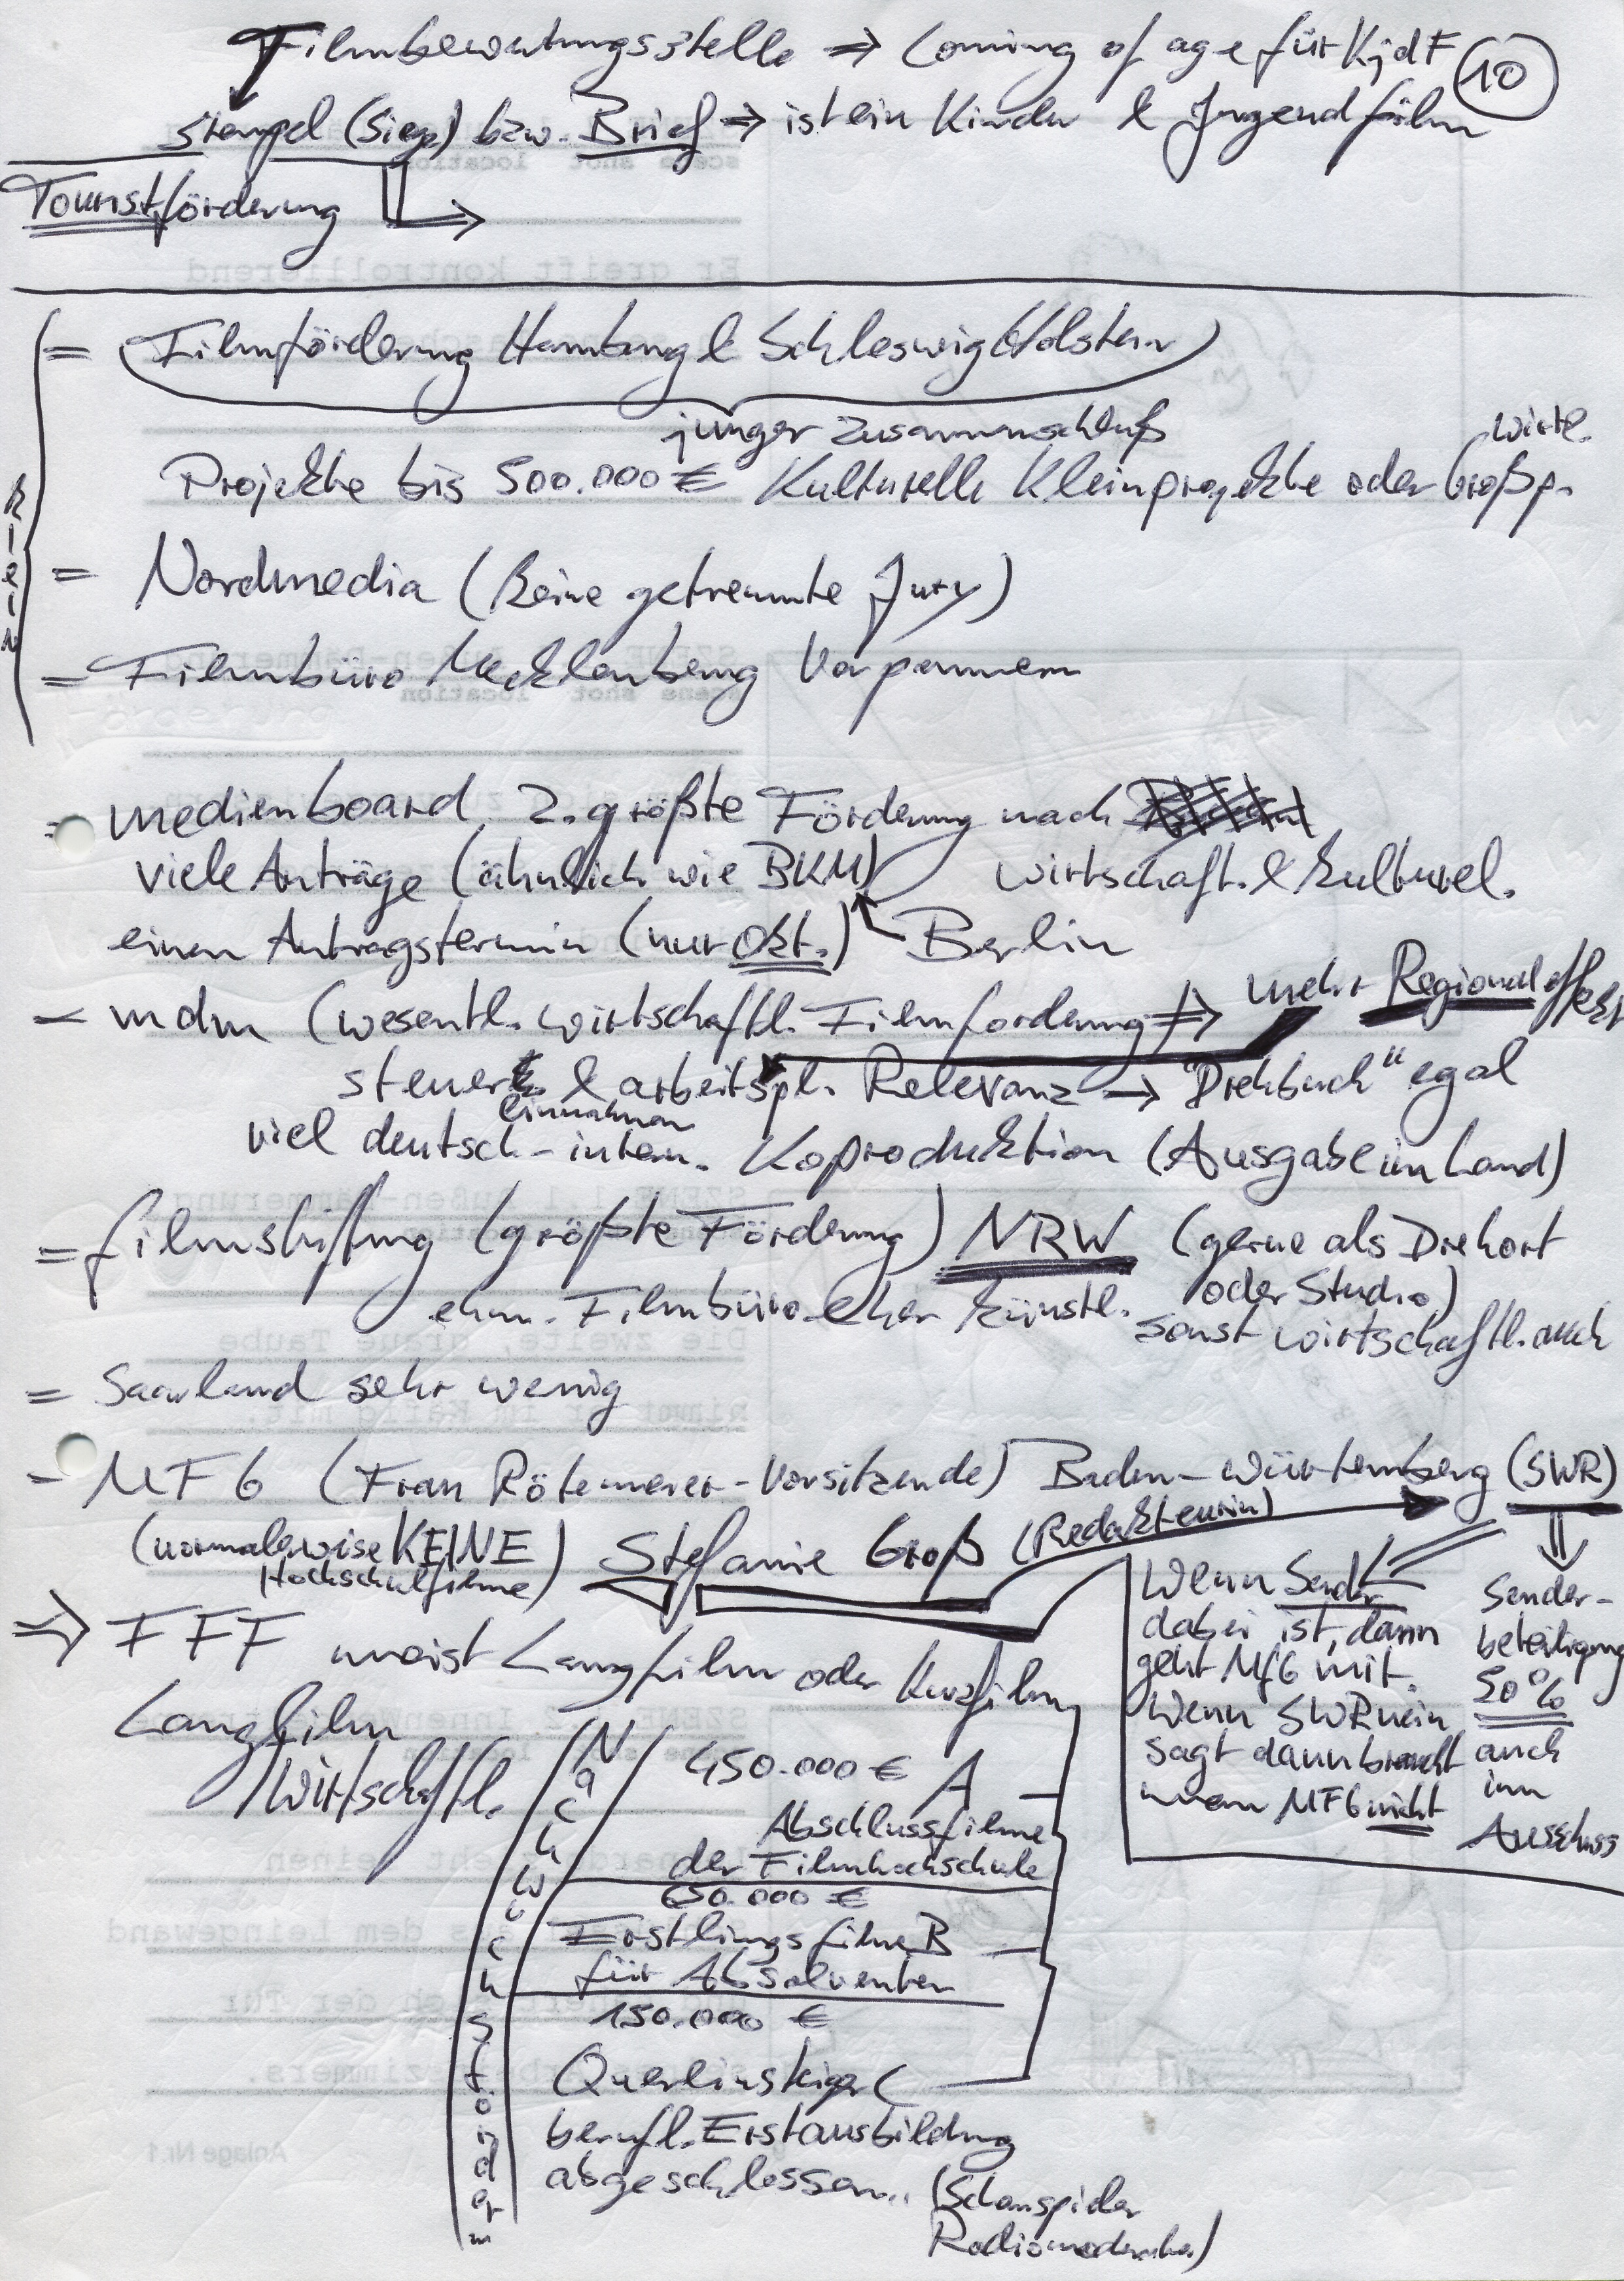 Filmbewertungsstelle ⇒ Coming of age für KjdF
10
Stempel (Siegel) bzw. Brief ⇒ ist ein Kinder & Jugendfilm
Touristförderung
= Filmförderung Hamburg & Schleswig Holstein
junger Zusammenschluß
Projekte bis 500.000 € Kulturelle Kleinprojekte oder Großp.
wirtl.
Klein
= Nordmedia (keine getrennte Jury)
= Filmbüro Mecklenburg Vorpommern
- medienboard 2. größte Förderung nach
viele Anträge (ähnlich wie BKM) wirtschaft. & kulturel.
einen Antragstermin (nur Okt.) Berlin
- mdm (wesentl. wirtschaftl. Filmförderung ⇒ mehr Regionaleffekt
steuer. & arbeitspl. Relevanz → "Drehbuch" egal
einnahmen
viel deutsch-intern. Koproduktion (Ausgabe im Land)
= filmstiftung (größte Förderung) NRW (gerne als Drehort
oder Studio)
ehm. Filmbüro eher künstl. sonst wirtschaftl. auch
= Saarland sehr wenig
- MFG (Frau Rötemeier-Vorsitzende) Baden-Würtemberg (SWR)
(normalerwise KEINE Hochschulfilme) Stefanie Groß (Redakteurin)
Wenn Sender
dabei ist, dann
geht MFG mit.
Wenn SWR nein
sagt dann braucht
man MFG nicht
Sender-
beteiligung
50%
auch
im
Ausschuss
⇒ FFF meist Langfilm oder Kurzfilm
Langfilm
wirtschaftl.
Nachwuchsförderm
450.000 € A
Abschlussfilme
der Filmhochschule
650.000 €
Erstlingsfilme B
für Absolventen
150.000 €
Querlinsteiger C
berufl. Erstausbildung
abgeschlossen.. (Schauspieler
Radiomoderator)